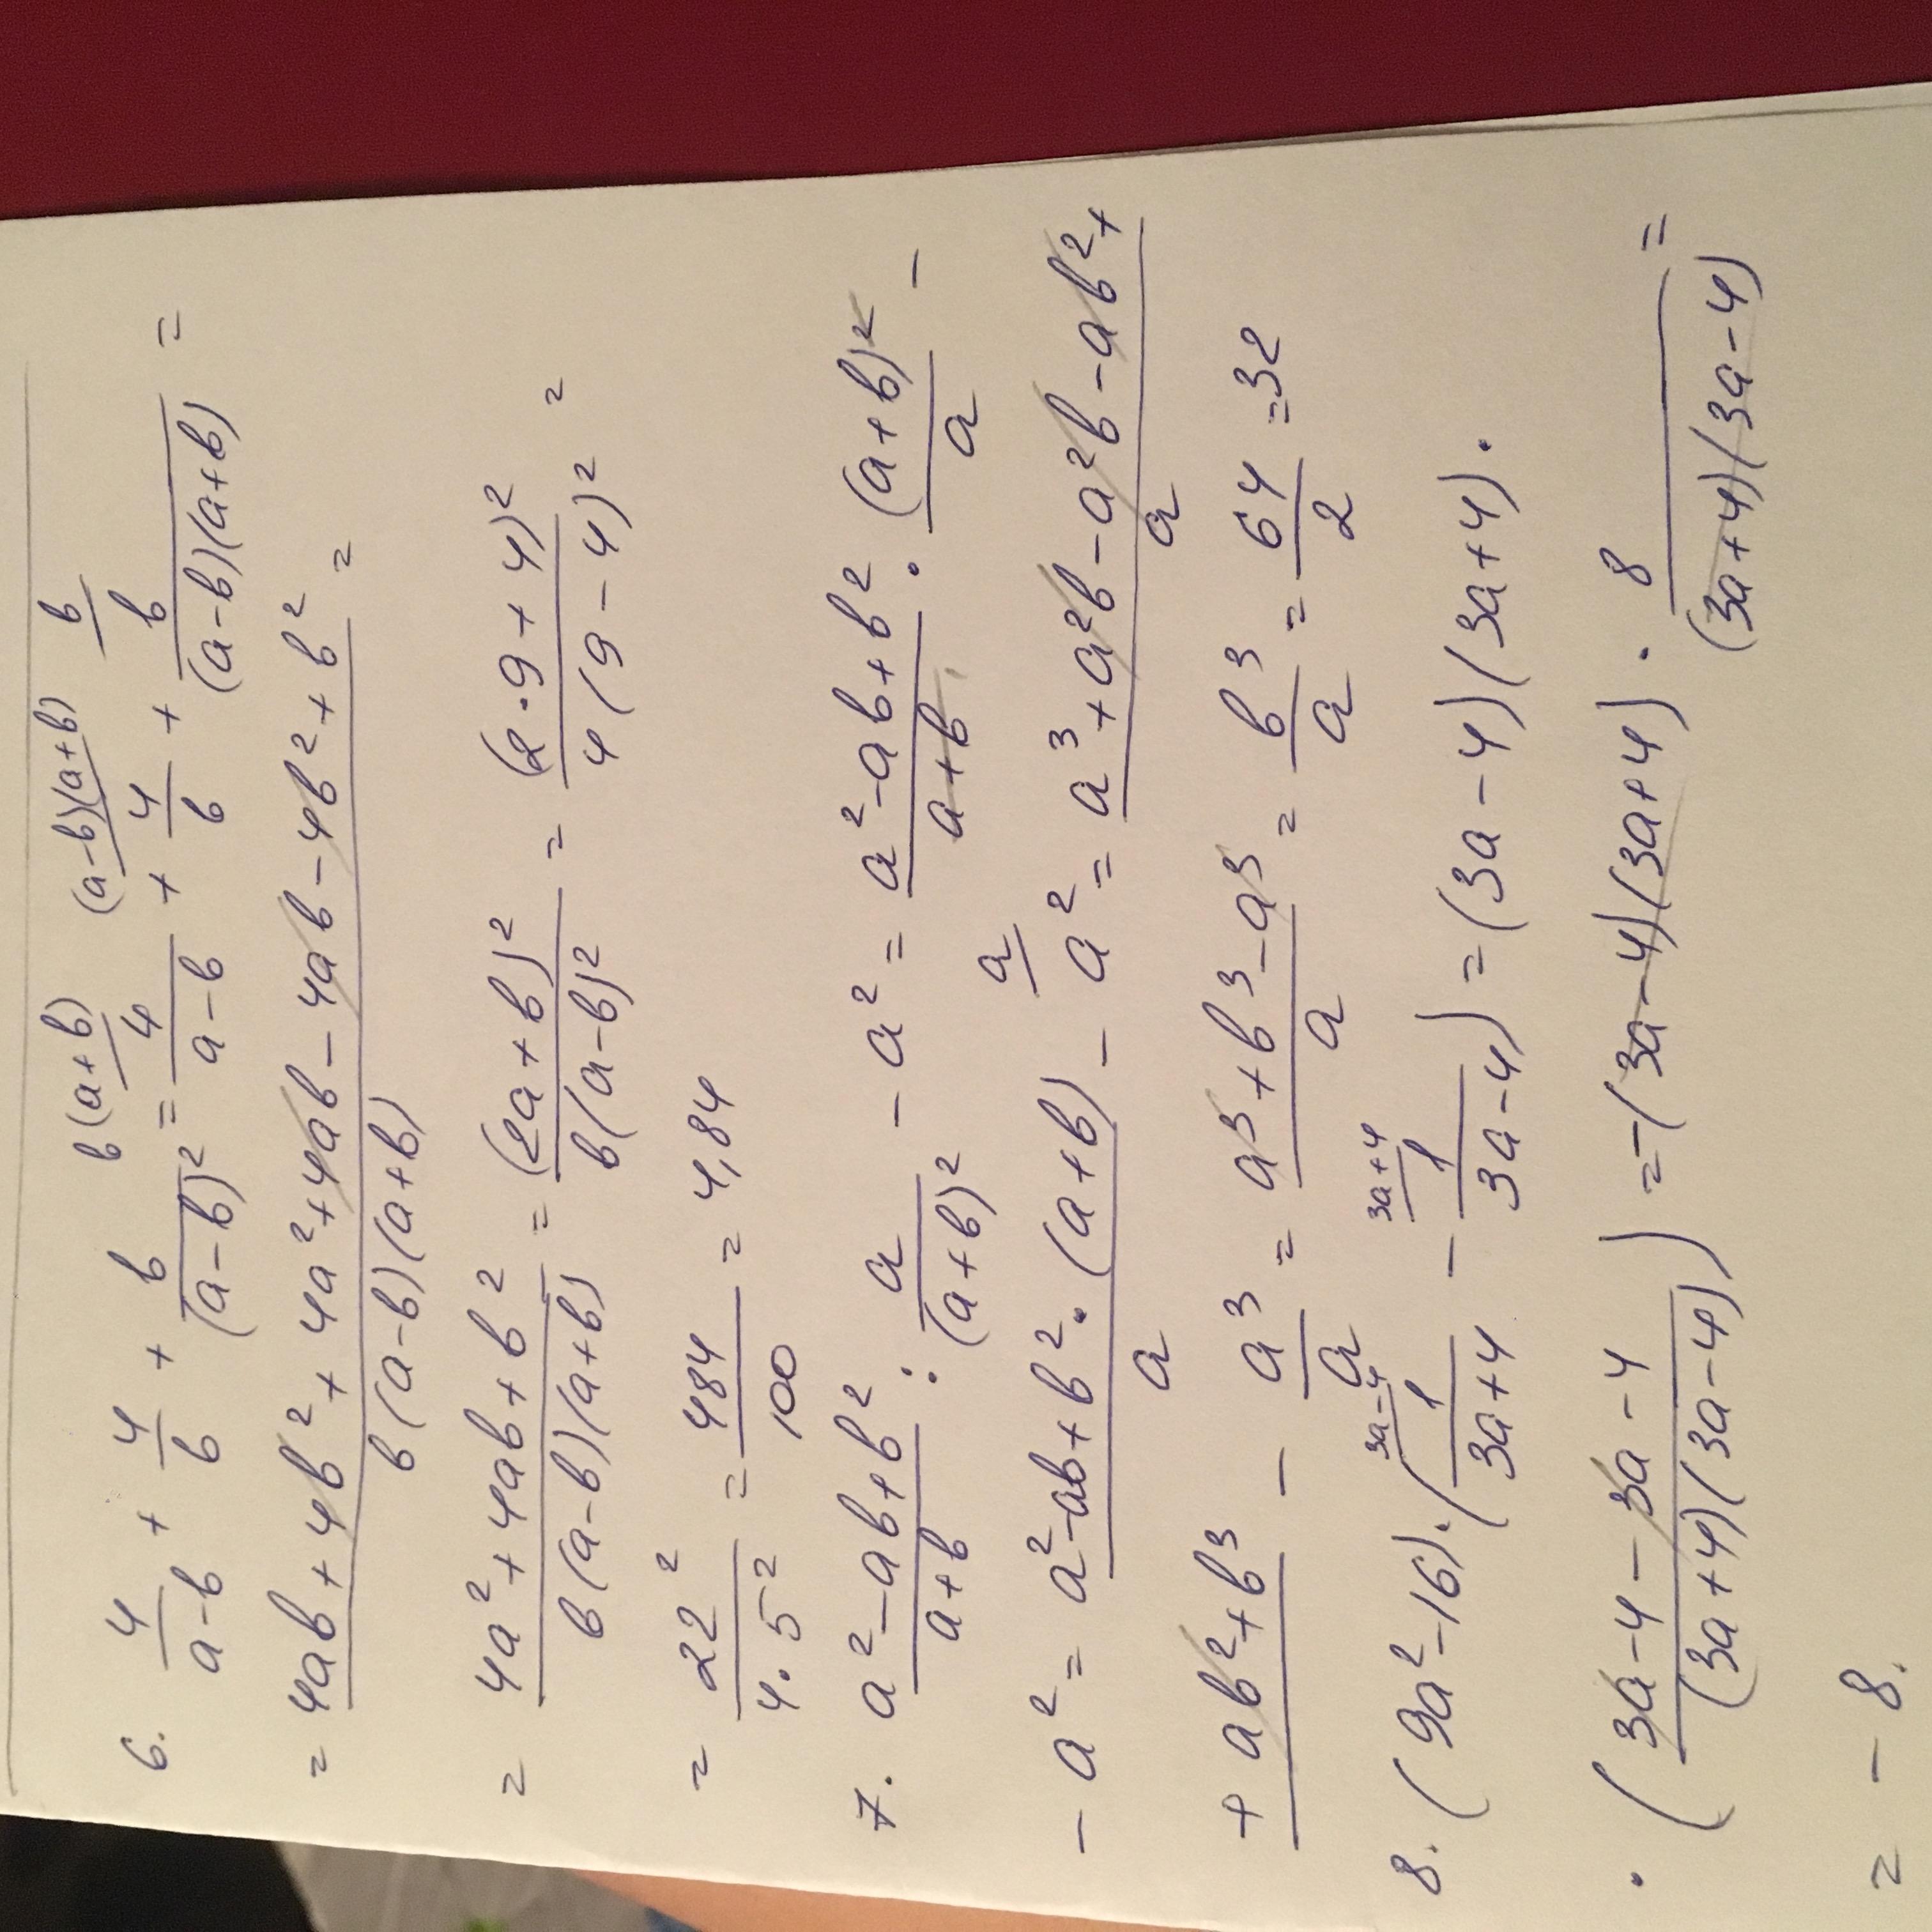 b(a+b) (a-b)(a+b) b
6. 4/(a-b) + 4/b + b/(a-b)² = 4/(a-b) + 4/b + b/((a-b)(a+b)) =
= (4ab + 4b² + 4a² + 4ab - 4ab - 4b² + b²)/(b(a-b)(a+b)) =
= (4a² + 4ab + b²)/(b(a-b)(a+b)) = (2a+b)²/(b(a-b)²) = (2·9+4)²/(4(9-4)²) =
= 22²/(4·5²) = 484/100 = 4,84
7. (a²-ab+b²)/(a+b) : a/(a+b)² - a² = (a²-ab+b²)/(a+b) · (a+b)²/a -
- a² = (a²-ab+b²·(a+b))/a - a² a = (a³+a²b-a²b-ab²+
+ab²+b³)/a - a³/a = (a³+b³-a³)/a = b³/a = 64/2 =32
3a-4 3a+4
8. (9a²-16)·(1/(3a+4) - 1/(3a-4)) = (3a-4)(3a+4)·
· ((3a-4-3a-4)/((3a+4)(3a-4))) =-(3a-4)(3a+4) · 8/((3a+4)(3a-4)) =
= -8.